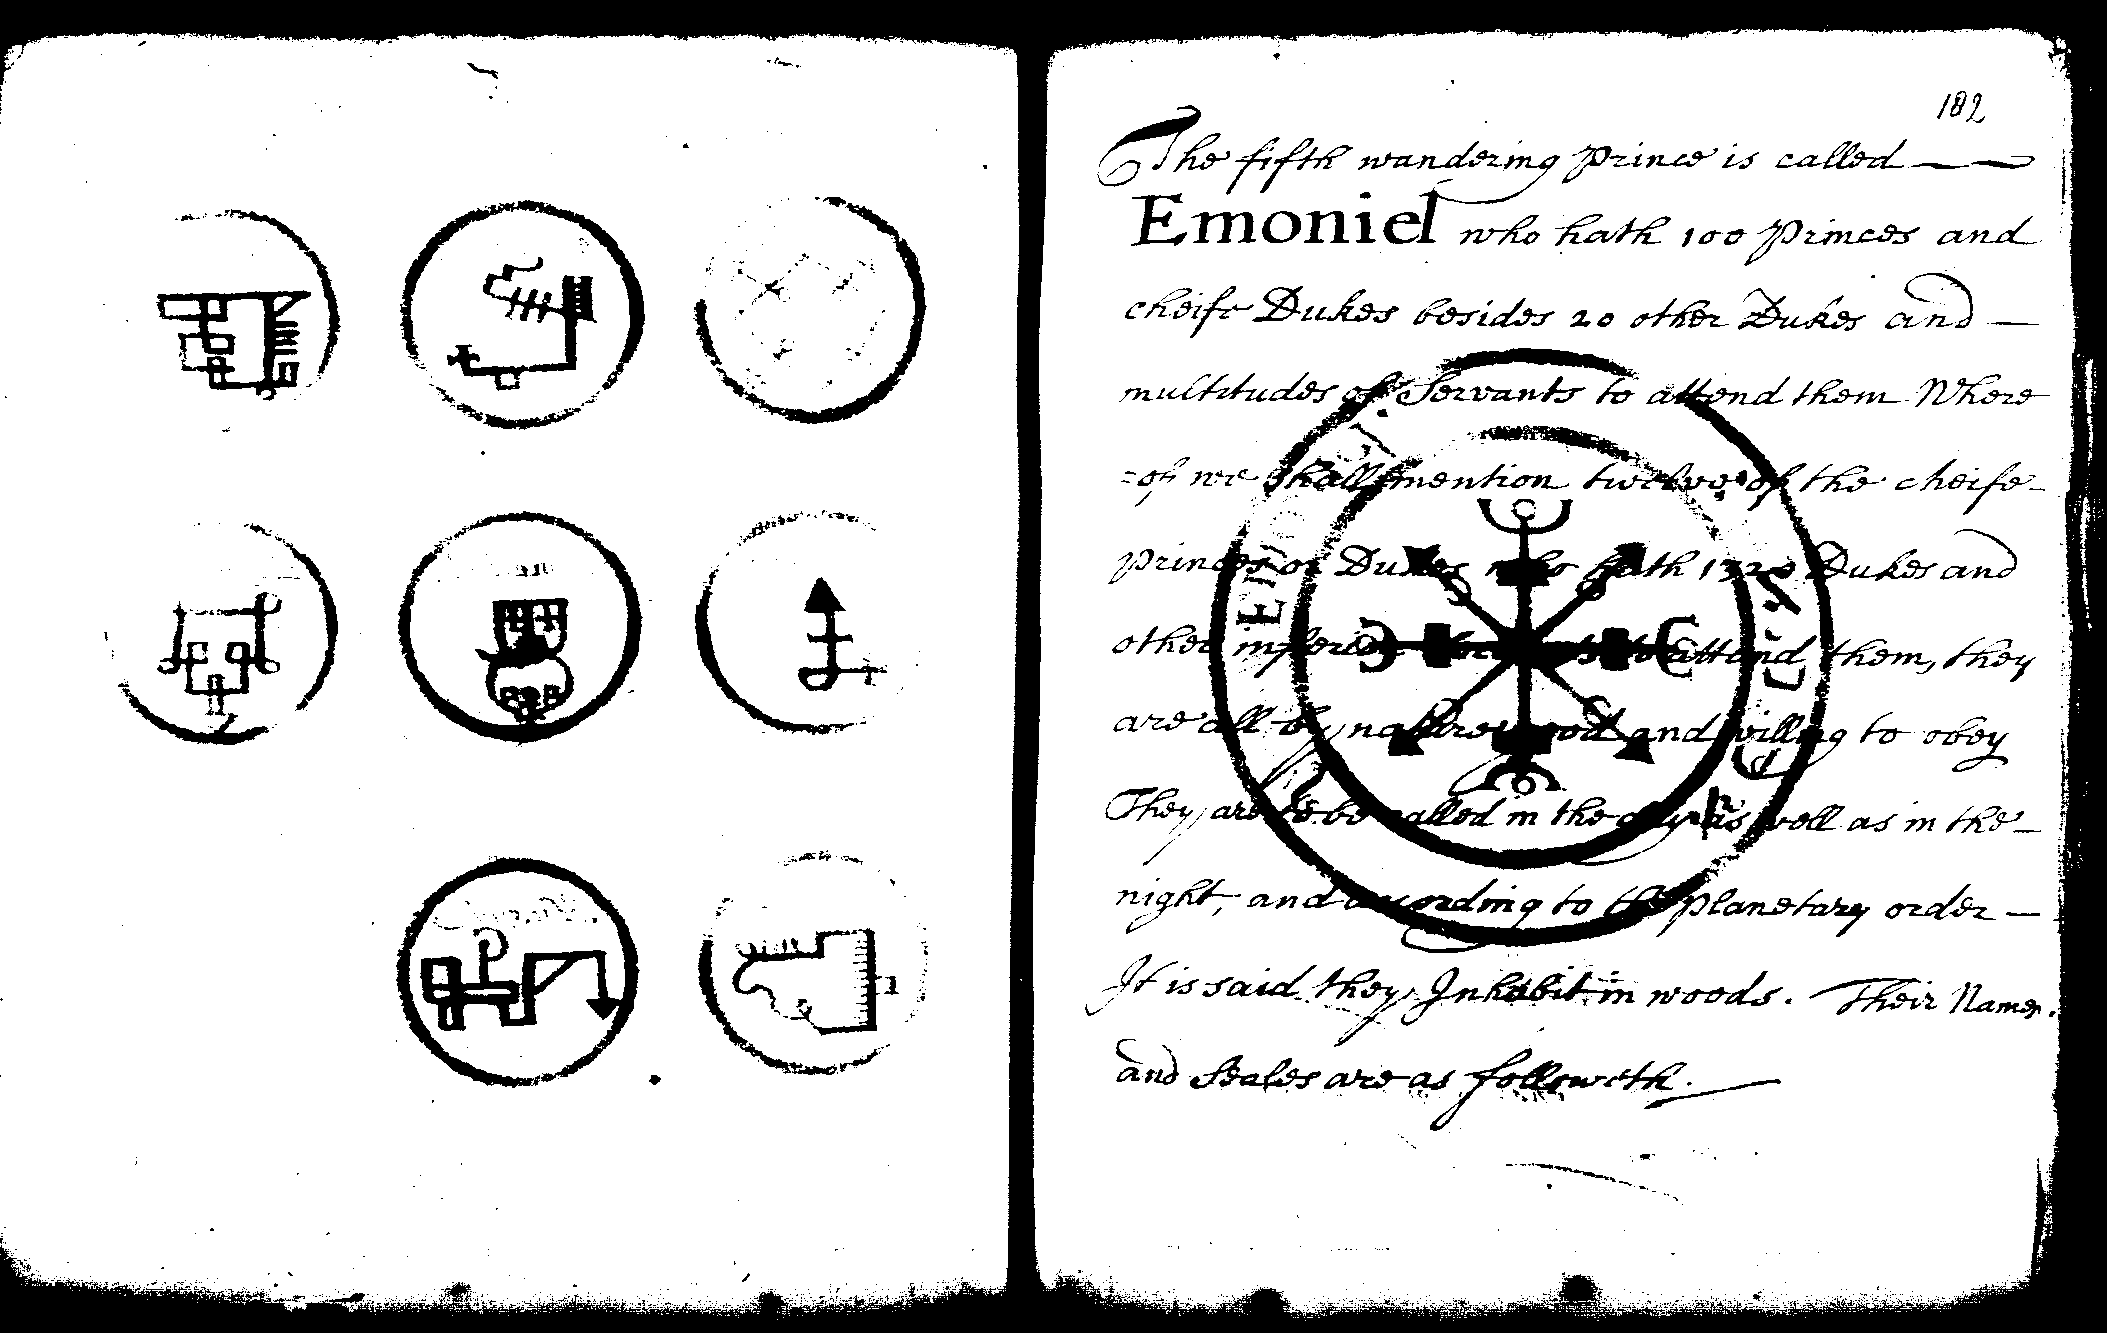 182
The fifth wandering Prince is called
Emoniel who hath 100 Princes and
cheife Dukes besides 20 other Dukes and
multitudes of Servants to attend them Where
=of we shall mention twelve of the cheife
princes or Dukes who hath 1320 Dukes and
other inferior to attend them, they
are all by nature good and willing to obey
They are to be called in the day as well as in the
night, and according to the planetary order
It is said they Inhabit in woods. Their Names
and Seales are as followeth.